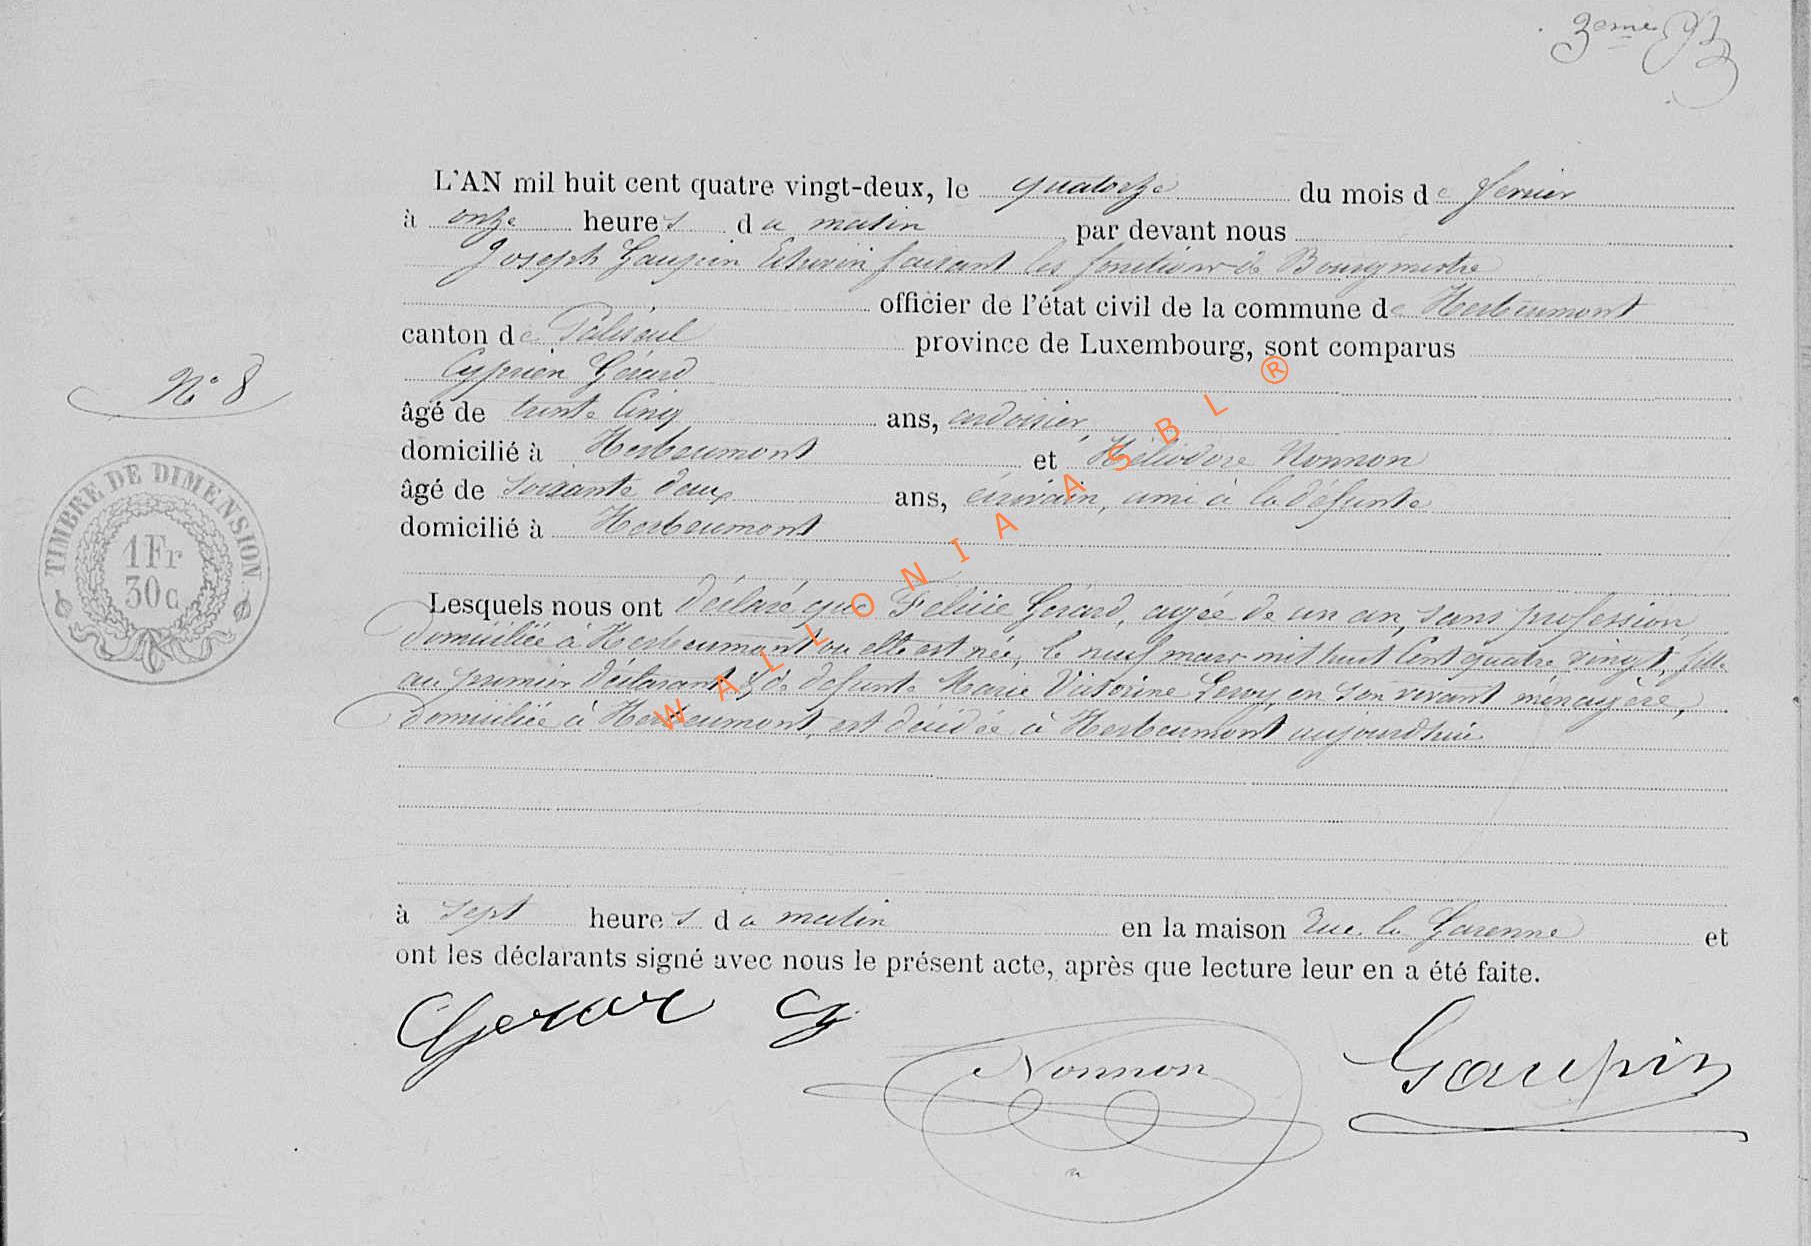 3eme
L'AN mil huit cent quatre vingt-deux, le quatorze du mois de fevrier
à onze heures du matin par devant nous
Joseph Gaupin Echevin faisant les fonctions de Bourgmestre
officier de l'état civil de la commune de Herbeumont
canton de Paliseul province de Luxembourg, sont comparus
Cyprien Gérard
N° 8
âgé de trente Cinq ans, ardoisier,
domicilié à Herbeumont et Héliodore Nonnon
âgé de soixante deux ans, écrivain, ami à la défunte
domicilié à Herbeumont
TIMBRE DE DIMENSION
1 Fr
30 c
Lesquels nous ont déclaré que Félicie Gérard, agée de un an, sans profession,
domiciliée à Herbeumont ou elle est née, le neuf mars mil huit Cent quatre vingt, fille
au premier déclarant & de defunte Marie Victorine Leroy, en son vivant ménagère,
domiciliée à Herbeumont, est décédée à Herbeumont aujourd'hui
à sept heures du matin en la maison rue la Garenne et
ont les déclarants signé avec nous le présent acte, après que lecture leur en a été faite.
Gerard Cy
Nonnon
Gaupin
WALLONIA ASBL ®